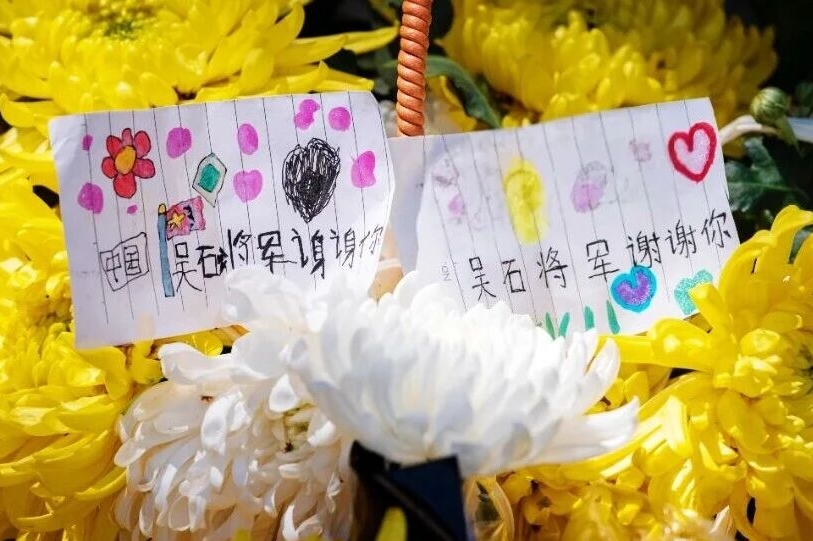 中国
吴石将军谢谢你
吴石将军谢谢你